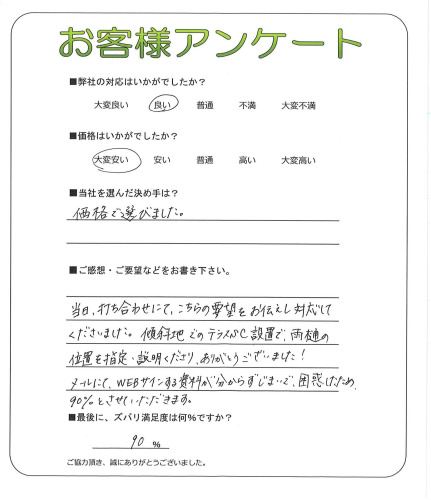 お客様アンケート
■弊社の対応はいかがでしたか?
大変良い 良い 普通 不満 大変不満
■価格はいかがでしたか?
大変安い 安い 普通 高い 大変高い
■当社を選んだ決め手は?
価格で選びました。
■ご感想・ご要望などをお書き下さい。
当日、打ち合わせにて、こちらの要望をお伝えし対応して
くださいました。傾斜地でのテラスSC設置で、雨樋の
位置を指定・説明くださり、ありがとうございました!
メールにて、WEBサインする資料が分からずじまいで、困惑したため、
90%とさせていただきます。
■最後に、ズバリ満足度は何%ですか?
90 %
ご協力頂き、誠にありがとうございました。